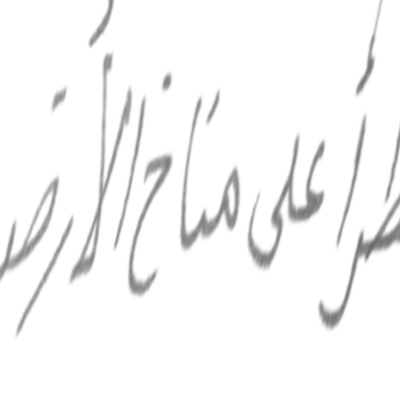 طرأ على مناخ الأرض